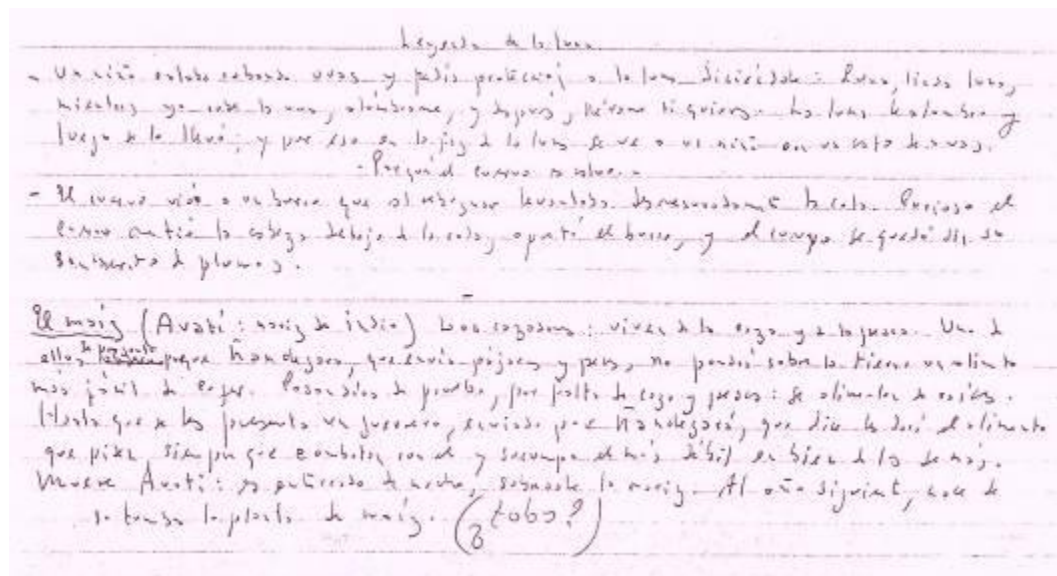 Leyenda de la luna
- Un niño estaba robando uvas y pedía protección a la luna diciéndole: Luna, linda luna,
mientras yo robe la uva, alúmbrame, y después, llévame si quieres. La luna le alumbra y
luego se lo llevó; y por eso en la faz de la luna se ve a un niño con un cesto de uvas.
- Porqué el cuervo es calvo -
- El cuervo vió a un burro que al rebuznar levantaba la cola. Curioso el
cuervo metió la cabeza debajo de la cola, apretó el burro, y el cuervo se quedó sin
de plumas.
El maíz (Avatí: maíz de indio) Dos cazadores: viven de la caza y de la pesca. Uno de
ellos se pregunta porque Ñandeyara, que envía pájaros y peces, no pondrá sobre la tierra un alimento
mas fácil de coger. Pasan días de prueba, por falta de caza y peces: se alimentan de raíces.
Hasta que se les presenta un guerrero, enviado por Ñandeyará, que dice les dará el alimento
que piden siempre que combatan con él y sucumba el más débil en bien de los demás.
Muere Avatí: es enterrado de noche, la nariz. Al año siguiente, nace de
su tumba la planta de maíz. ( tobo?)